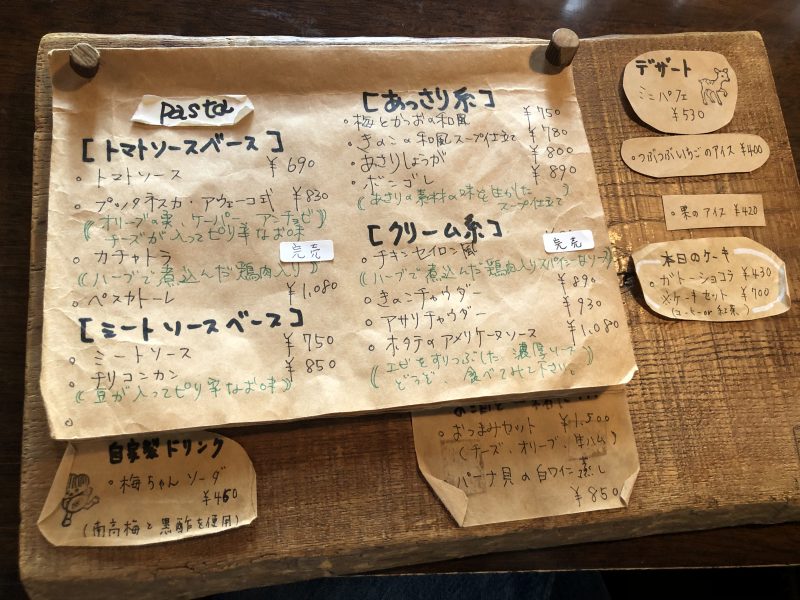 pasta
[トマトソースベース]
・トマトソース ¥690
・プッタネスカ・アヴェーコ式 ¥830
(オリーブの実、ケーパー、アンチョビ
チーズが入ってピリ辛なお味)
・カチャトラ 完売
(ハーブで煮込んだ鶏肉入り)
・ペスカトーレ ¥1,080
[ミートソースベース]
・ミートソース ¥750
・チリコンカン ¥850
(豆が入ってピリ辛なお味)
[あっさり系]
・梅とかつおの和風 ¥750
・きのこの和風スープ仕立て ¥780
・あさりしょうが ¥800
・ボンゴレ ¥890
(あさりの素材の味を生かした
スープ仕立て)
[クリーム系]
・チキンセイロン風 完売
(ハーブで煮込んだ鶏肉入りスパイシーなソース)
・きのこチャウダー ¥890
・アサリチャウダー ¥930
・ホタテのアメリケーヌソース ¥1,080
(エビをすりつぶした濃厚ソース
どうぞ、食べてみて下さい。)
デザート
ミニパフェ
¥530
・つぶつぶいちごのアイス ¥400
・栗のアイス ¥420
本日のケーキ
・ガトーショコラ ¥430
※ケーキセット ¥700
(コーヒーor紅茶)
自家製ドリンク
・梅ちゃんソーダ
¥450
(南高梅と黒酢を使用)
・おつまみセット ¥1,500
(チーズ、オリーブ、生ハム)
パーナ貝の白ワイン蒸し
¥850